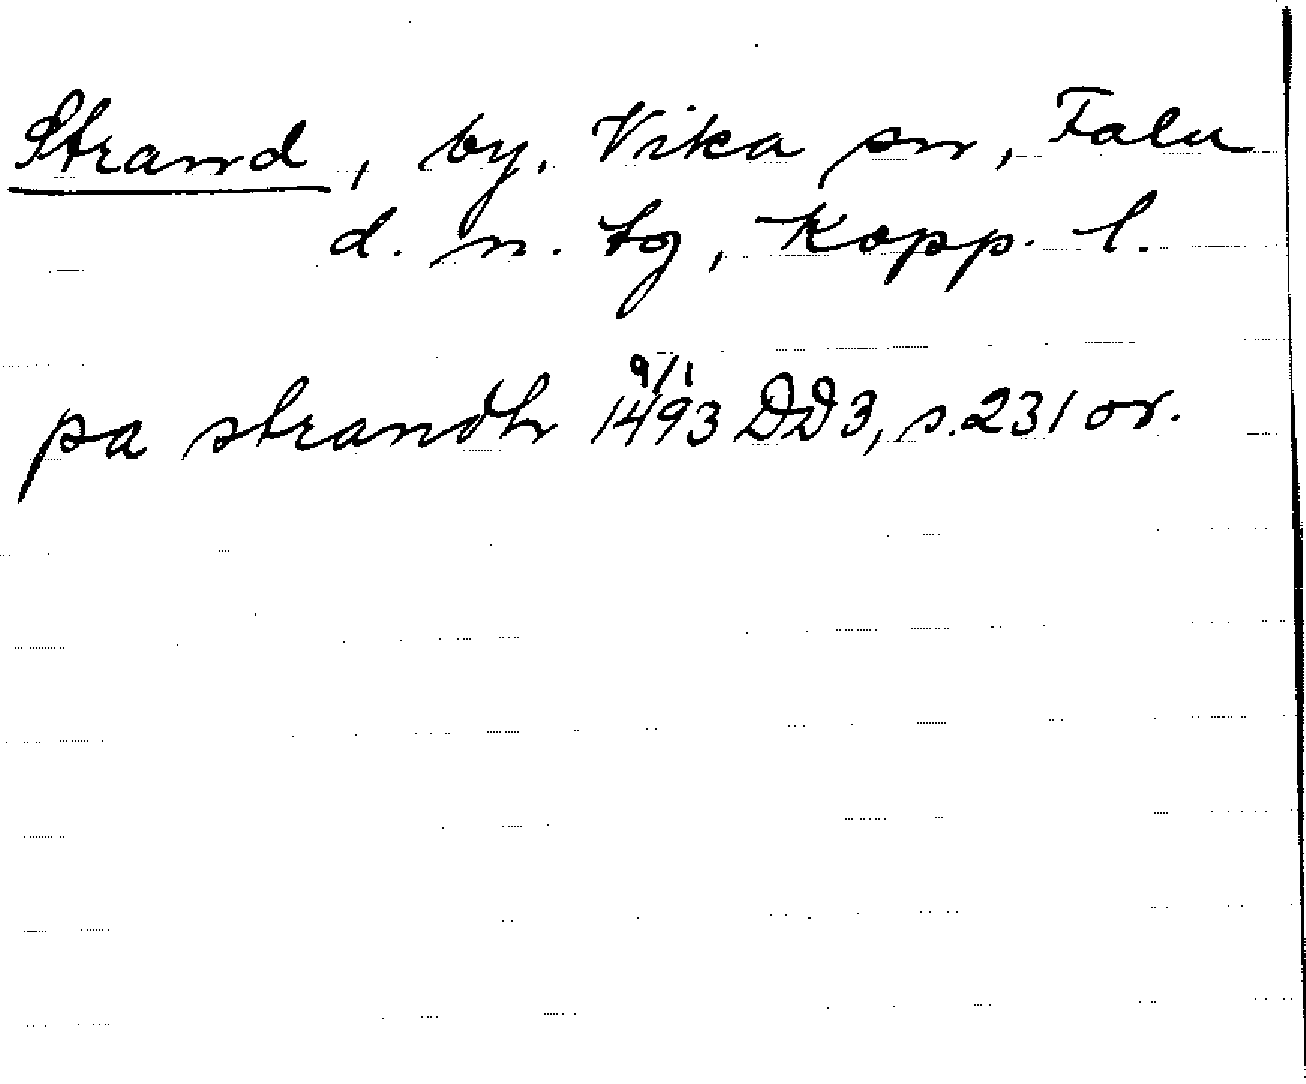 Strand, by, Vika sn, Falu
d. n. tg, Kopp. l.
pa strandh 9/1 1493 DD3, s. 231 or.